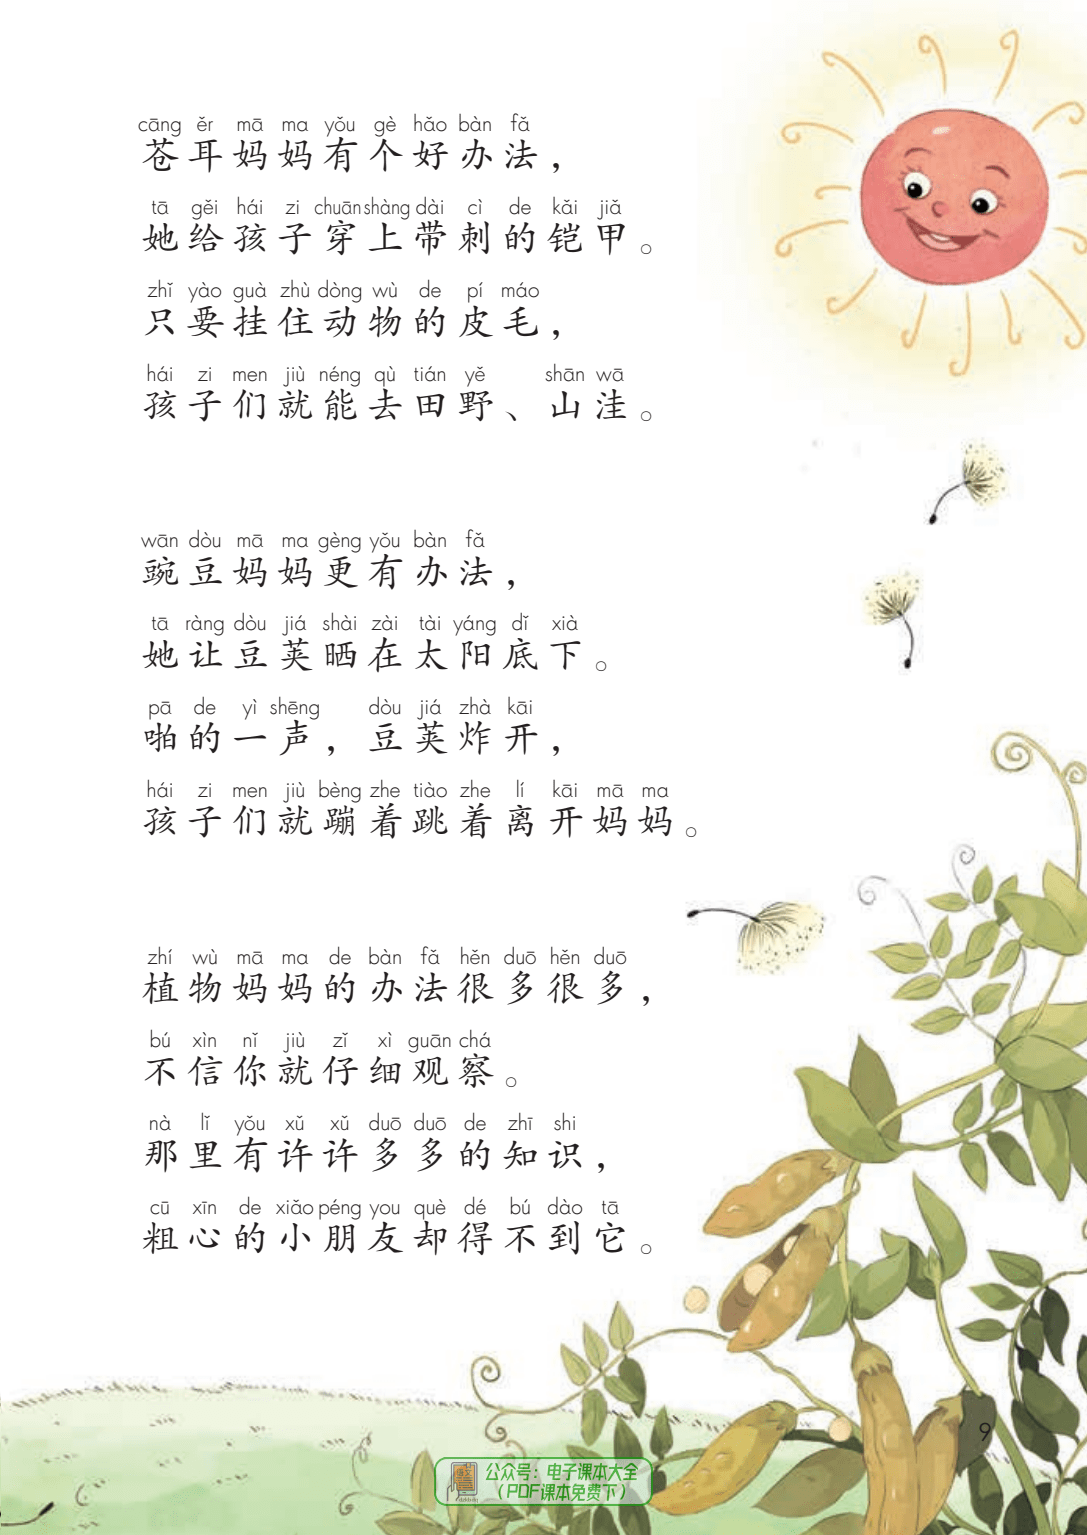 cāng ěr mā ma yǒu gè hǎo bàn fǎ
苍耳妈妈有个好办法，
tā gěi hái zi chuān shàng dài cì de kǎi jiǎ
她给孩子穿上带刺的铠甲。
zhǐ yào guà zhù dòng wù de pí máo
只要挂住动物的皮毛，
hái zi men jiù néng qù tián yě shān wā
孩子们就能去田野、山洼。
wān dòu mā ma gèng yǒu bàn fǎ
豌豆妈妈更有办法，
tā ràng dòu jiá shài zài tài yáng dǐ xià
她让豆荚晒在太阳底下。
pā de yì shēng dòu jiá zhà kāi
啪的一声，豆荚炸开，
hái zi men jiù bèng zhe tiào zhe lí kāi mā ma
孩子们就蹦着跳着离开妈妈。
zhí wù mā ma de bàn fǎ hěn duō hěn duō
植物妈妈的办法很多很多，
bú xìn nǐ jiù zǐ xì guān chá
不信你就仔细观察。
nà lǐ yǒu xǔ xǔ duō duō de zhī shi
那里有许许多多的知识，
cū xīn de xiǎo péng you què dé bú dào tā
粗心的小朋友却得不到它。
9
公众号：电子课本大全
（PDF课本免费下）